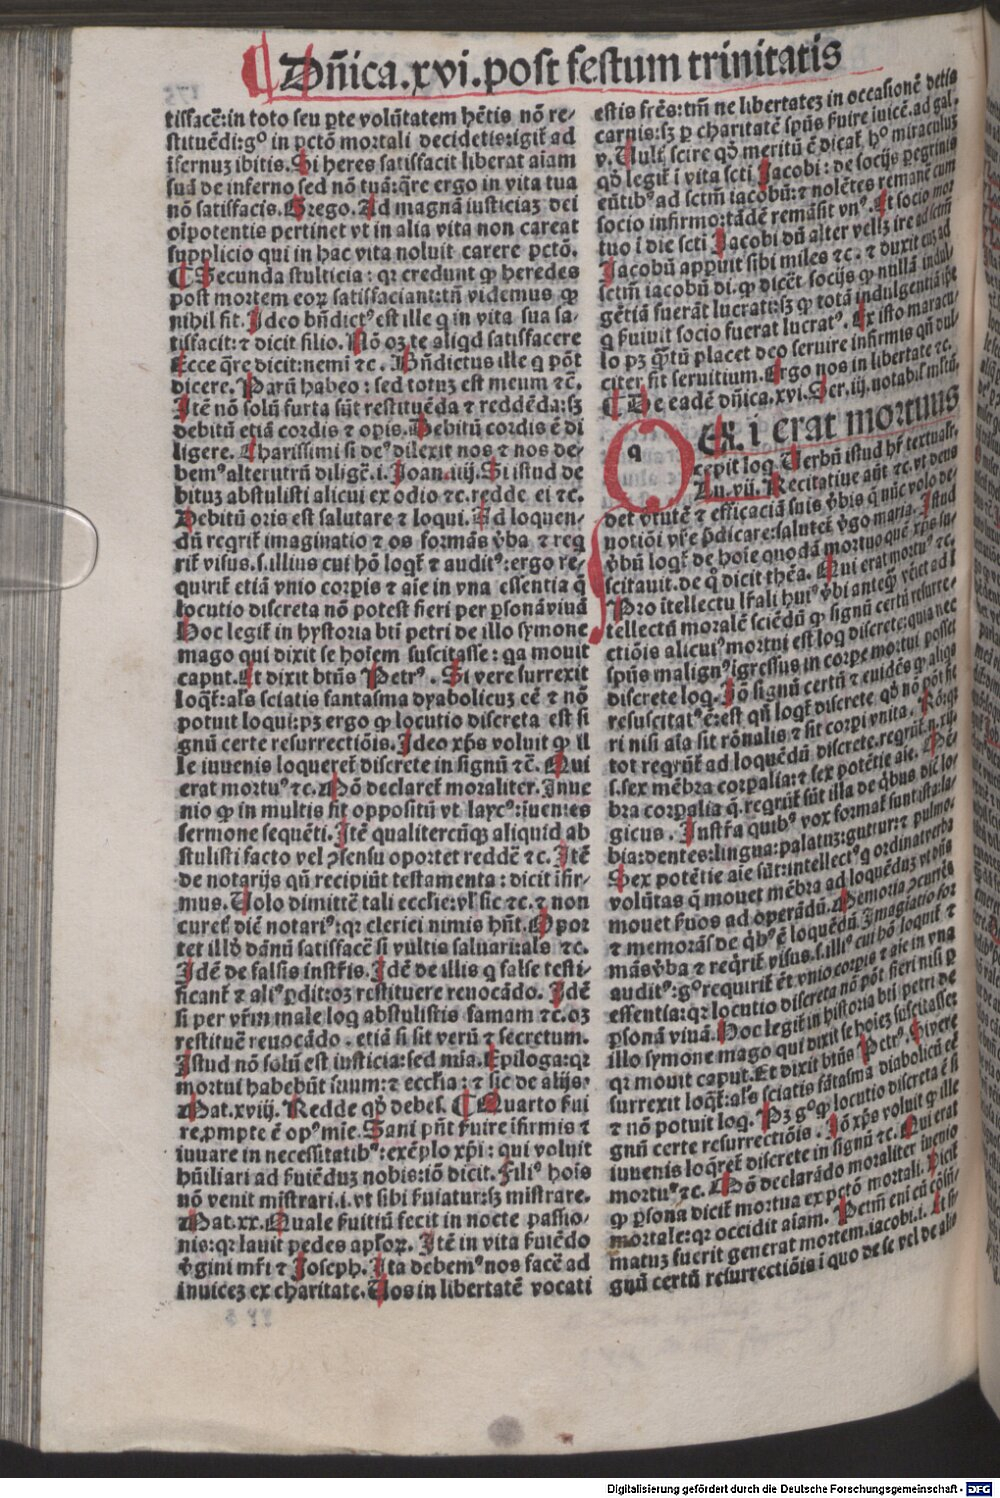 Dñica.xvi.post festum trinitatis
tisfacẽ: in toto seu ꝑte volũtatem hẽtis nõ re⸗
stituẽdi: gº in pctõ mortali decidetis: igiť ad
ĩfernuʒ ibitis. Si heres satisfacit liberat aĩam
suã de inferno sed nõ tuã: q̃re ergo in vita tua
nõ satisfacis. Grego. Ad magnã iusticiaʒ dei
oĩpotentis pertinet vt in alia vita non careat
supplicio qui in hac vita noluit carere pctõ.
¶ Secunda stulticia: qꝛ credunt ꝙ heredes
post mortem eoꝝ satisfaciant: tñ videmus ꝙ
nihil fit. Ideo bñdictꝰ est ille q in vita sua sa⸗
tisfacit: ⁊ dicit filio. Nõ oʒ te aliqd satisfacere
Ecce q̃re dicit: nemi ⁊c. Bñdictus ille q põt
dicere. Parũ habeo: sed totuʒ est meum ⁊c̃.
Itẽ nõ solũ furta sũt restituẽda ⁊ reddẽda: sʒ
debitũ etiã cordis ⁊ opis. Debitũ cordis ẽ di
ligere. Charissimi si deꝰ dilexit nos ⁊ nos de⸗
bemꝰ alterutrũ diligẽ. i. Joan. iiij. Si istud de
bituʒ abstulisti alicui ex odio ⁊c. redde ei ⁊c.
Debitũ oris est salutare ⁊ loqui. Ad loquen⸗
dũ reqriť imaginatio ⁊ os formãs v̾ba ⁊ req
riť visus. s. illius cui hõ loqť ⁊ auditꝰ: ergo re⸗
quiriť etiã vnio corpis ⁊ aĩe in vna essentia q̃
locutio discreta nõ potest fieri per ꝑsonã viuã
Hoc legiť in hystoria bti petri de illo symone
mago qui dixit se hoĩem suscitasse: qa mouit
caput. Et dixit btũs Petrꝰ. Si vere surrexit
loq̃ť: als sciatis fantasma dyabolicuʒ eẽ ⁊ nõ
potuit loqui: pʒ ergo ꝙ locutio discreta est si
gnũ certe resurrectiõis. Ideo xp̃s voluit ꝙ il
le iuuenis loquereť discrete in signũ ⁊c̃. Qui
erat mortuꝰ ⁊c. Mõ declareť moraliter. Inue
nio ꝙ in multis fit oppositũ vt laycꝰ: iuen:es
sermone sequẽti. Itẽ qualitercũqʒ aliquid ab
stulisti facto vel ꝯsensu oportet reddẽ ⁊c. Itẽ
de notarijs qñ recipiũt testamenta: dicit ĩfir⸗
mus. Volo dimittẽ tali ecclie: vł sic ⁊c. ⁊ non
cureť diẽ notariꝰ: qꝛ clerici nimis hñt. Opor
tet illð dãnũ satisfacẽ si vultis saluari: als ⁊c.
Idẽ de falsis instr̃is. Idẽ de illis q false testi⸗
ficanť ⁊ aliꝰ ꝑdit: oʒ restituere reuocãdo. Idẽ
si per vr̃m male loq abstulistis famam ⁊c. oʒ
restituẽ reuocãdo. etiã si sit verũ ⁊ secretum.
Istud nõ solũ est iusticia: sed mĩa. Epiloga: qꝛ
mortui habebũt suum: ⁊ ecclia: ⁊ sic de alijs.
Mat.xviij. Redde qð debes. ¶ Quarto ẜui
re ꝓmpte ẽ opꝰ mĩe. Sani pñt ẜuire ĩfirmis ⁊
iuuare in necessitatibꝰ: exẽplo xpi: qui voluit
hũiliari ad ẜuiẽduʒ nobis: iõ dicit. Filiꝰ hoĩs
nõ venit mĩstrari. i. vt sibi ẜuiatur: sʒ mĩstrare.
Mat.xx. Quale ẜuitiũ fecit in nocte passio⸗
nis: qꝛ lauit pedes apłoꝝ. Itẽ in vita ẜuiẽdo
v̾gini mr̃i ⁊ Joseph. Ita debemꝰ nos facẽ ad
inuiceʒ ex charitate. Uos in libertatẽ vocati
estis fr̃es: tñ ne libertateʒ in occasionẽ detis
carnis: sʒ ꝑ charitatẽ spũs ẜuire iuicẽ. ad gal.
v. Uult scire qð meritũ ẽ dicaʈ hº miraculuʒ
qð legiť ĩ vita scti Jacobi: de socijs ꝑegrinis
eũtibꝰ ad sctm̃ iacobũ: ⁊ nolẽtes remanẽ cum
socio infirmo: tãdẽ remãsit vnꝰ. Et socio mor
tuo ĩ die scti Jacobi dũ alter velłʒ ire ad sctm̃
Jacobũ apꝑuit sibi miles ⁊c. ⁊ duxit eũ ad
sctm̃ iacobũ di. ꝙ dicẽt socijs ꝙ nullã indul⸗
gẽtiã fuerãt lucrati: sʒ ꝙ totã indulgentiã ip̃e
q ẜuiuit socio fuerat lucratꝰ. Ex isto maracu⸗
lo pʒ q̃tũ placet deo seruire infirmis qñ dul⸗
citer fit seruitium. Ergo nos in libertate ⁊c.
¶ De eadẽ dñica. xvi. Ser. iij. notabił mltũ.
QEx. i erat mortuus
cepit loq. Uerbũ istud hr̃ textualr̃.
Lu. vij. Recitatiue aũt ⁊c. vt deus
det v̾tutẽ ⁊ efficaciã suis v̾bis q̃ nũc volo de⸗
notiõi vr̃e p̃dicare: saluteť v̾go maria. Istud
v̾bũ loqť de hoĩe quodã mortuo quẽ xp̃s su⸗
scitauit. de qº dicit thẽa. Qui erat mortuꝰ ⁊c.
Pro ĩtellectu lr̃ali huiꝰ v̾bi anteq̃ vẽiet ad ĩ
tellectũ moralẽ sciẽdũ ꝙ signũ certũ resurre⸗
ctiõis alicuiꝰ mortui est loq discrete: quia nec
spũs malignꝰ igressus in corpe mortui posset
discrete loq. Iõ signũ certũ ⁊ euidẽs ꝙ aliqs
resuscitatꝰ ẽ: est qñ loqť discrete qð nõ põt fie
ri nisi aĩa sit rõnalis ⁊ sit corpi vnita. Rõ: qꝛ
tot reqrũť ad loquẽdũ discrete. reqrũť. n. xij.
s. sex mẽbra corpalia: ⁊ sex potẽtie aĩe. Mẽ⸗
bra corpalia q̃. reqrũť sũt illa de qbus dic̃ lo⸗
gicus. Instr̃a quibꝰ vox formať sunt ista: la⸗
bia: dentes: lingua: palatuʒ: guttur: ⁊ pulmo.
Sex potẽtie aĩe sũt: intellectꝰ q ordinat verba
volũtas q mouet mẽbra ad loquẽduʒ vt dñs
mouet ẜuos ad operãdũ. Memoria ꝯcurrẽs
⁊ memorãs de qbꝰ ẽ loquẽdũ. Imagiatio for
mãs v̾ba ⁊ req̃riť visus. s. illiꝰ cui hõ loquiť ⁊
auditꝰ: gº requiriť ẽt vnio corpis ⁊ aĩe in vna
essentia: qꝛ locutio discreta nõ põt fieri nisi ꝑ
ꝑsonã viuã. Hoc legiť in historia bti petri de
illo symone mago qui dixit se hoieʒ suscitasse:
qꝛ mouit caput. Et dixit btũs Petrꝰ. Si vere
surrexit loq̃ť: als sciatis fãtasma diabolicũ eẽ
⁊ nõ potuit loq. Pʒ gº ꝙ locutio discreta ẽ si
gnũ certe resurrectiõis. Iõ xp̃s voluit ꝙ ille
iuuenis loq̃reť discrete in signũ ⁊c. Qui erat
mortuꝰ ⁊c. Mõ declarãdo moraliter iuenio
ꝙ ꝑsona dicit̃ mortua ex pctõ mortali. Dicit̃
mortale: qꝛ occidit aĩam. Petm̃ enĩ cũ cõsũ⸗
matuʒ fuerit generat mortem. iacobi. i. Et si⸗
gnũ certũ resurrectiõis ĩ quo de se vel de alio
Digitalisierung gefördert durch die Deutsche Forschungsgemeinschaft - DFG